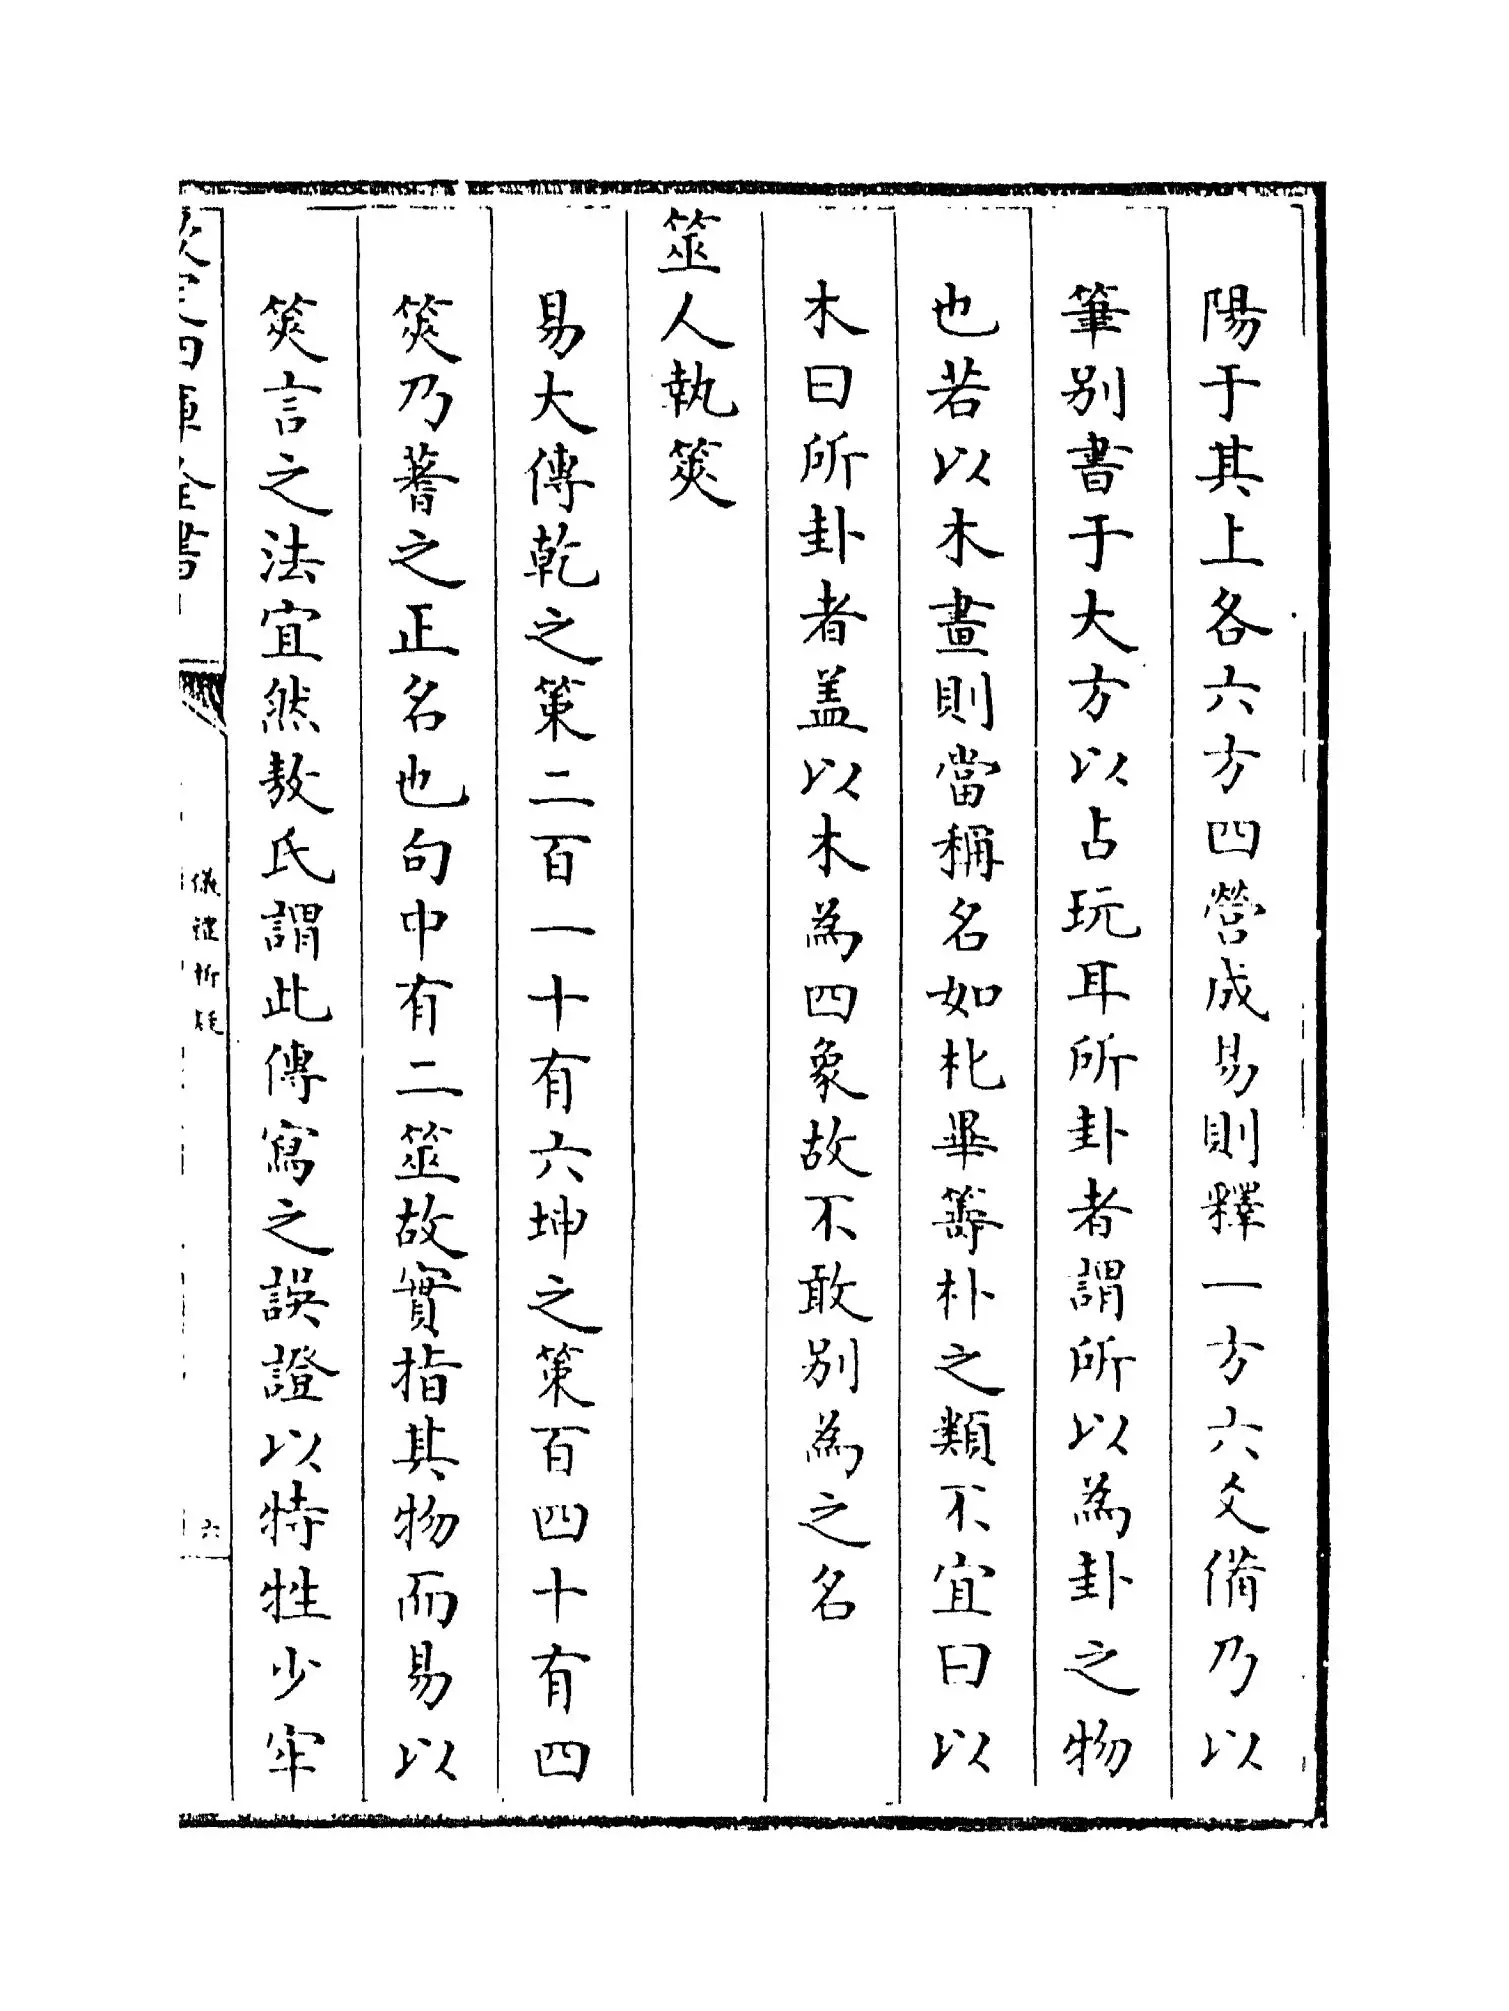 陽于其上各六方四營成易則釋一方六爻備乃以
筆别書于大方以占玩耳所卦者謂所以為卦之物
也若以木畫則當稱名如朼畢籌朴之類不宜曰以
木曰所卦者盖以木為四象故不敢别為之名
筮人執筴
易大傳乾之策二百一十有六坤之策百四十有四
筴乃蓍之正名也句中有二筮故實指其物而易以
筴言之法宜然敖氏謂此傳寫之誤證以特牲少牢
欽定四庫全書
儀禮析疑
六